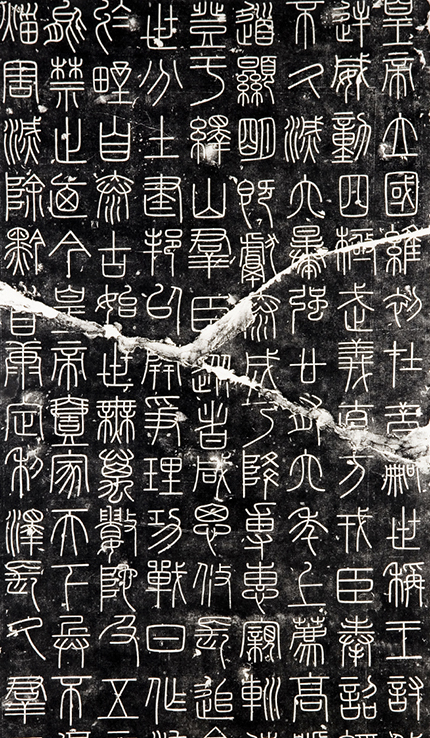 皇帝立國維初在昔嗣世稱王討
逆威動四極武義直方戎臣奉詔
不久滅六暴強廿有六年上薦高
道顯明既獻泰成乃降專惠親巡
登于繹山群臣從者咸思攸長追
世分土建邦以開爭理功戰日作
於野自泰古始世無萬數陀及五
能禁止廼今皇帝壹家天下兵不
災害滅除黔首康定利澤長久群